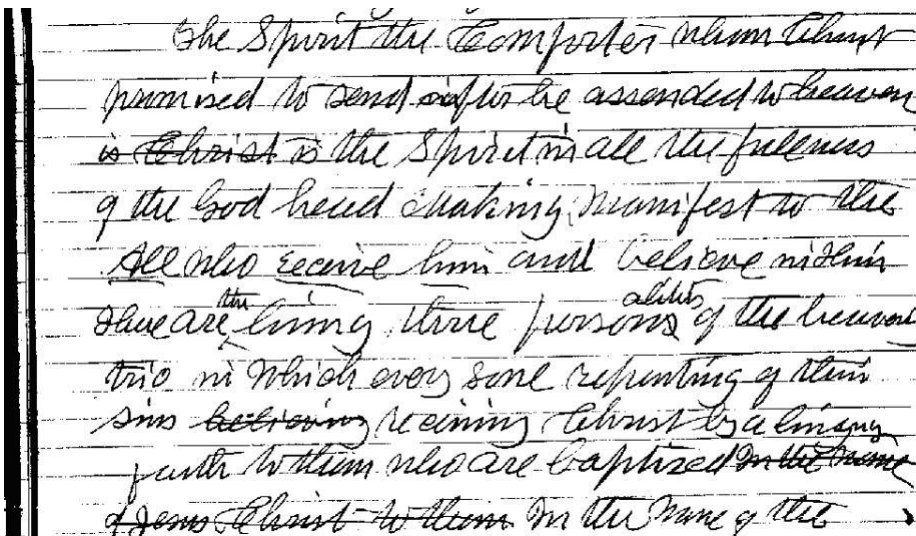 The Spirit the Comforter whom Christ
promised to send after he assended to heaven
is Christ is the Spirit in all the fulness
of the God head making manifest to the
All who receive him and believe in Him
there are the living three personalities of the heavenly
trio in which every soul repenting of their
sins believing receiving Christ by a living
faith to them who are baptized In the name
of Jesus Christ to them In the name of the